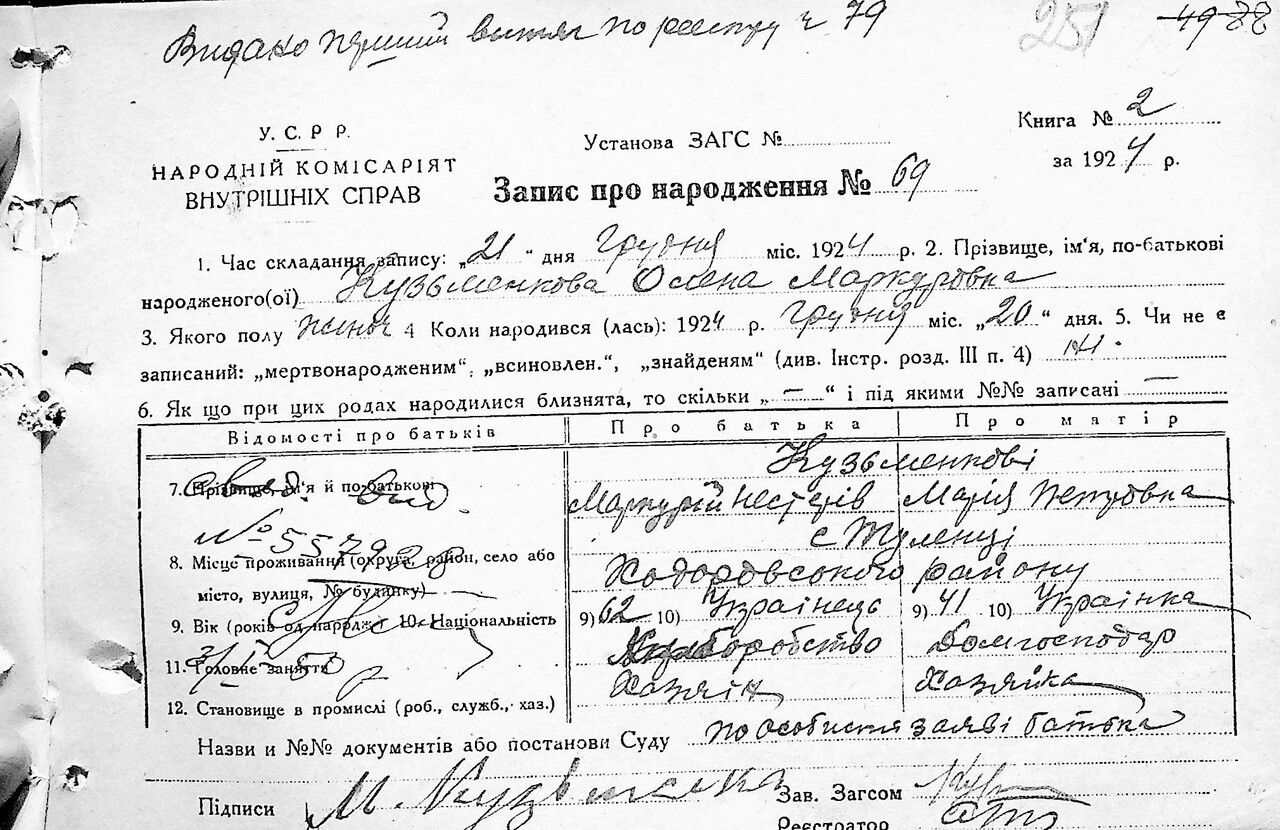 Видано перший витяг по реестру ч 79
251 4988
У. С. Р Р.
НАРОДНІЙ КОМІСАРІЯТ
ВНУТРІШНІХ СПРАВ
Установа ЗАГС №
Книга № 2
за 1924 р.
Запис про народження № 69
1. Час складання запису: „21" дня Грудня міс. 1924 р. 2. Прізвище, ім'я, по-батькові
народженого(ої) Кузьменкова Олена Маркуровна
3. Якого полу жіноч 4 Коли народився (лась): 1924 р. Грудня міс. „20" дня. 5. Чи не є
записаний: „мертвонародженим", „всиновлен.", „знайденям" (див. Інстр. розд. III п. 4) ні.
6. Як що при цих родах народилися близнята, то скільки „—" і під якими №№ записані —
Відомості про батьків Про батька Про матір
Кузьменкові
7. Прізвище, ім'я й по-батькові Маркурій Нестерів Марія Петровна
№ 557920
с Туленці
8. Місце проживання (округа, район, село або Ходоровського району
місто, вулиця, № будинку)
9. Вік (років од народж.) 10. Національність 9) 62 10) Українець 9) 41 10) Українка
11. Головне заняття Хліборобство Домгосподар
12. Становище в промислі (роб., служб., хаз.) Хазяін Хазяйка
Назви и №№ документів або постанови Суду по особистій заяві батька
Підписи М. Кузьменко Зав. Загсом
Реєстратор